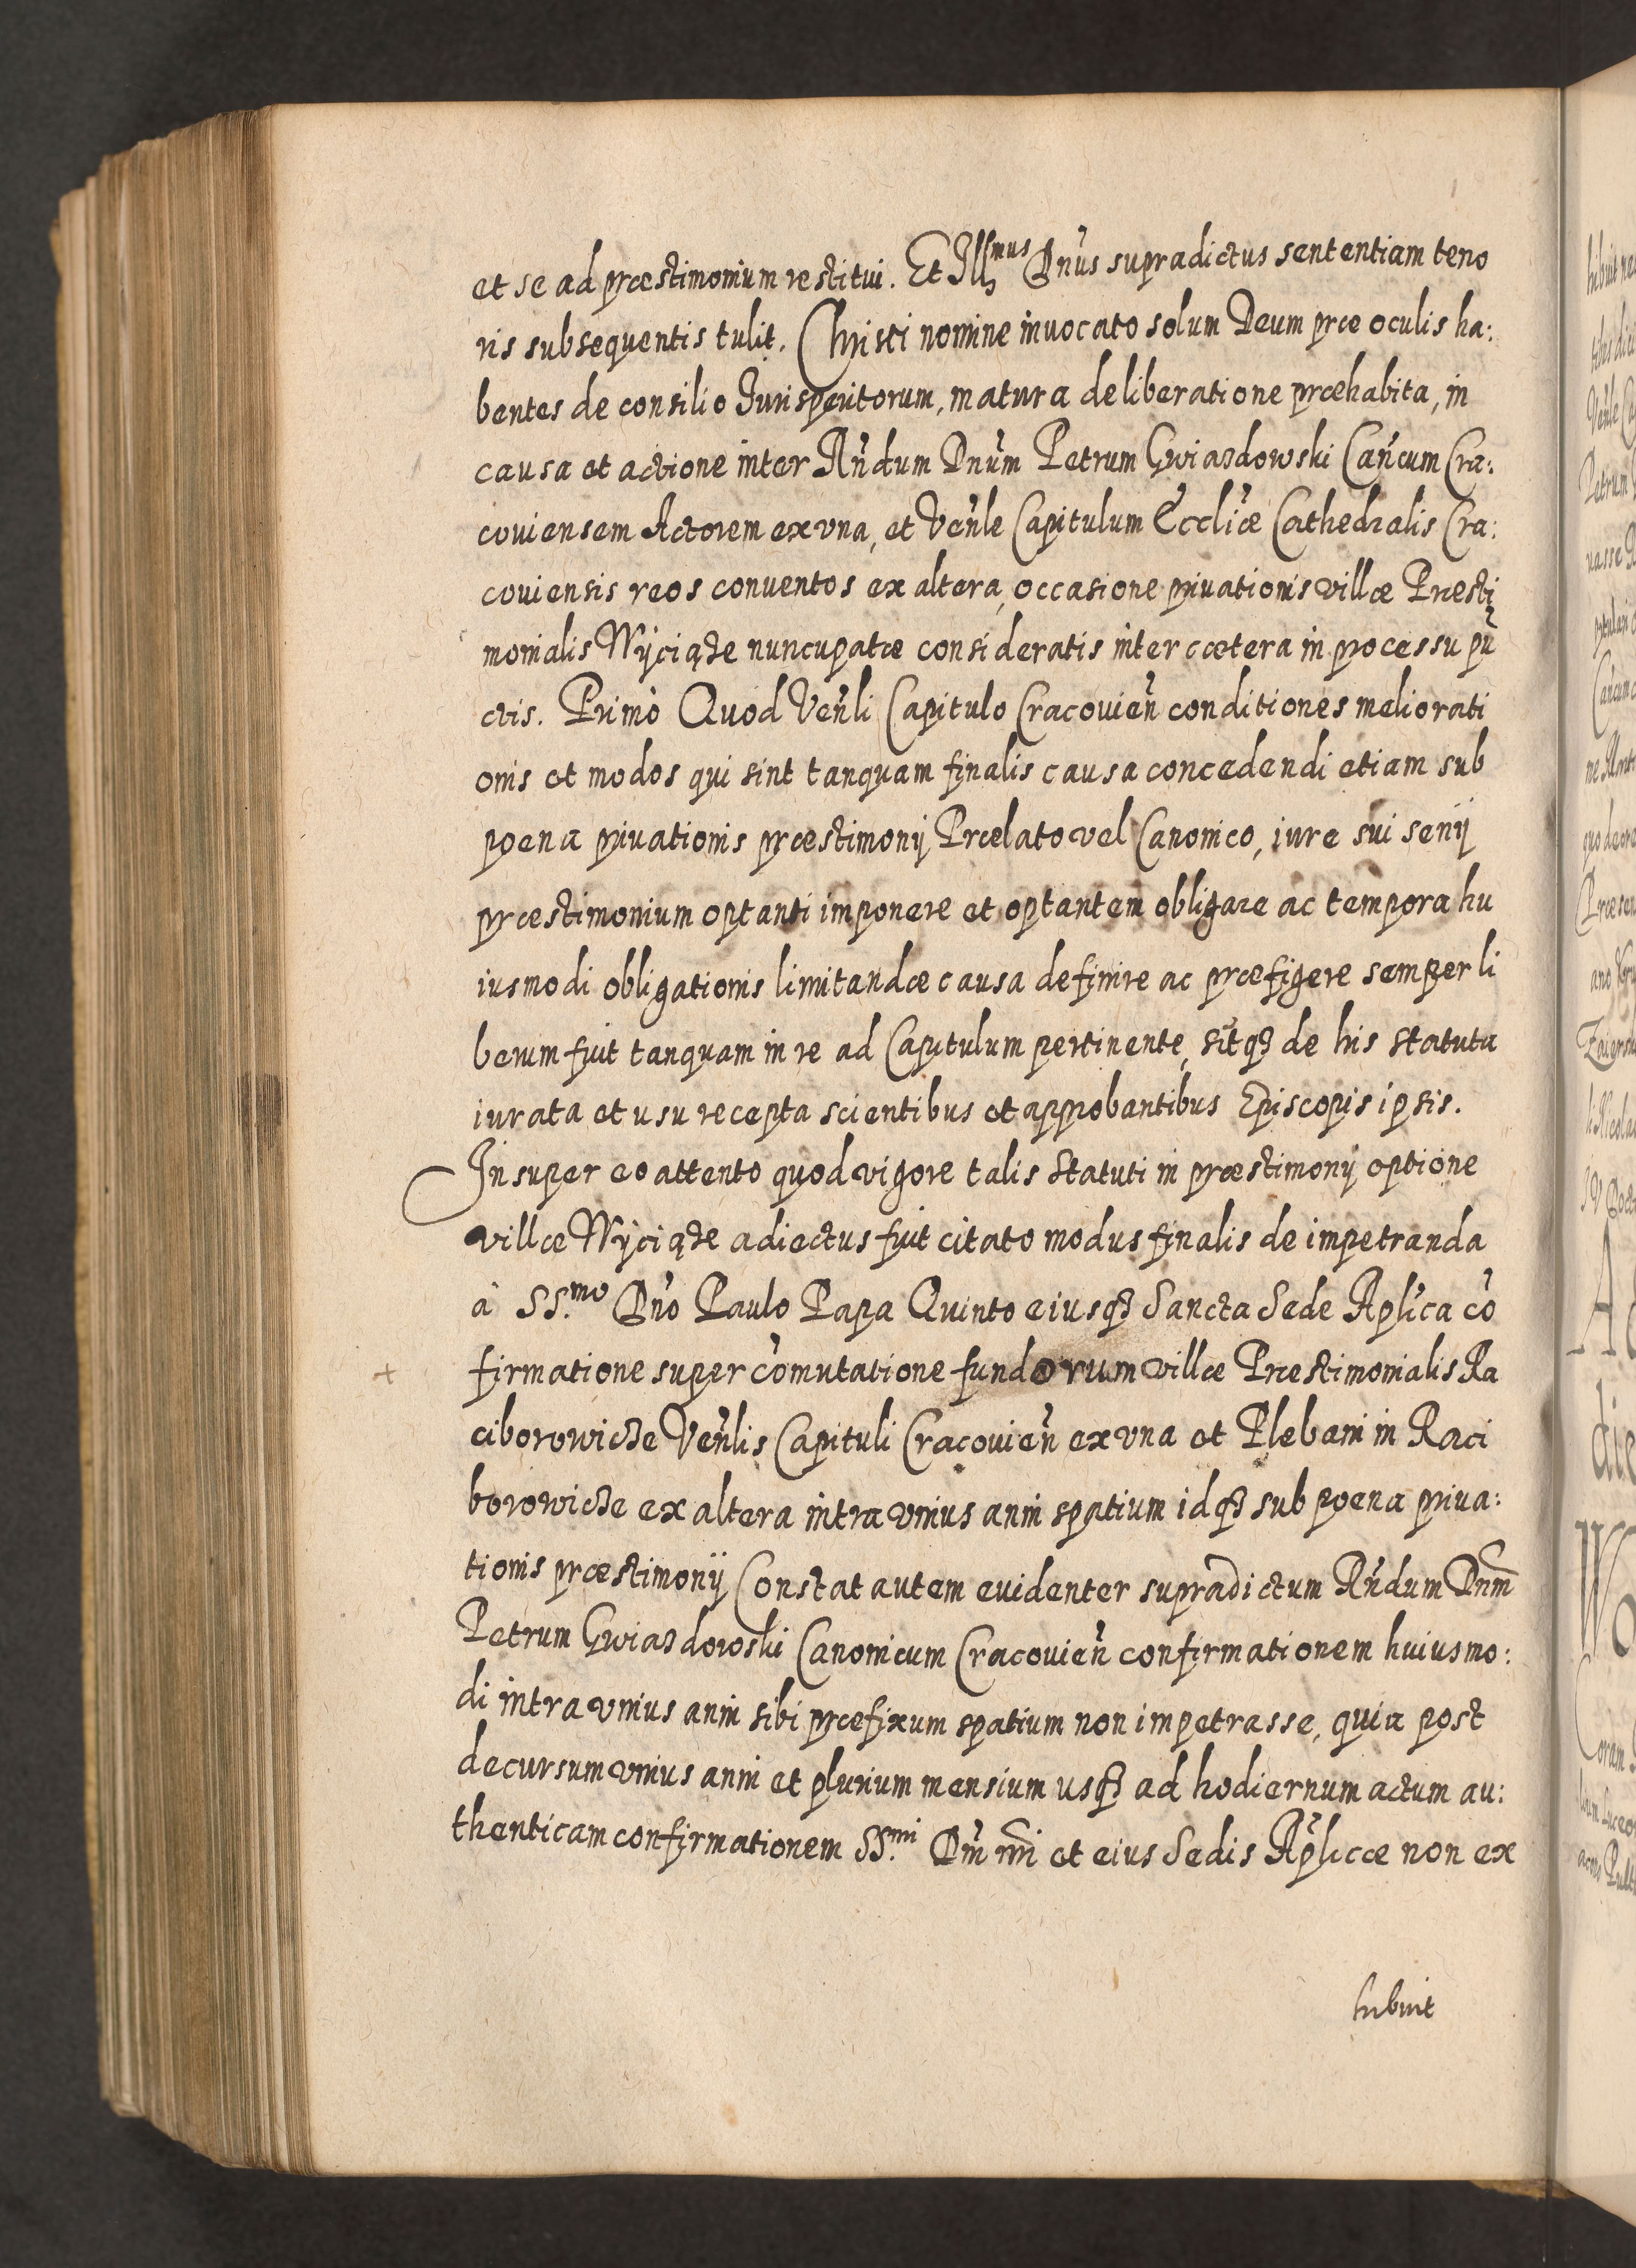 et se ad præstimonium restitui. Et Ill͂mus Dn̄us supradictus sententiam teno
ris subsequentis tulit. Christi nomine invocato solum Deum præ oculis ha:
bentes de consilio Jurisperitorum, matura deliberatione præhabita, in
causa et actione inter Rn̄dum Dnūm Petrum Gwiazdowski Can̄cum Cra:
coviensem Actorem ex vna, et Ven̄le Capitulum Eccliæ Cathedralis Cra:
coviensis reos conventos ex altera, occasione privationis villæ Præsti
monialis Wÿciąże nuncupatæ consideratis inter cætera in processu pū
ctis. Primò Quod Ven̄li Capitulo Cracovien̄ conditiones meliorati
onis et modos qui sint tanquam finalis causa concedendi etiam sub
poena privationis præstimonÿ Prælato vel Canonico, iure sui senÿ
præstimonium optanti imponere et optantem obligare ac tempora hu
iusmodi obligationis limitandæ causa definire ac præfigere semper li
berum fuit tanquam in re ad Capitulum pertinente, sitqꝫ de his statuta
iurata et usu recepta scientibus et approbantibus Episcopis ipsis.
Insuper eo attento quod vigore talis Statuti in præstimonÿ optione
villæ Wÿciąże adiectus fuit citato modus finalis de impetranda
à SS.mo Dn̄o Paulo Papa Quinto eiusqꝫ Sancta Sede Aplica cō
firmatione super com̄utatione fundorum villæ Præstimonialis Ra
ciborowicze Ven̄lis Capituli Cracovien̄ ex vna et Plebani in Raci
borowicze ex altera intra vnius anni spatium idqꝫ sub poena priva:
tionis præstimonÿ Constat autem evidenter supradictum Rn̄dum Dnm̄
Petrum Gwiazdowski Canonicum Cracovien̄ confirmationem huiusmo:
di intra vnius anni sibi præfixum spatium non impetrasse, quia post
decursum vnius anni et plurium mensium usqꝫ ad hodiernum actum au:
thenticam confirmationem SS.mi Dn̄i nr̄i et eius Sedis Aplicæ non ex
hibuit